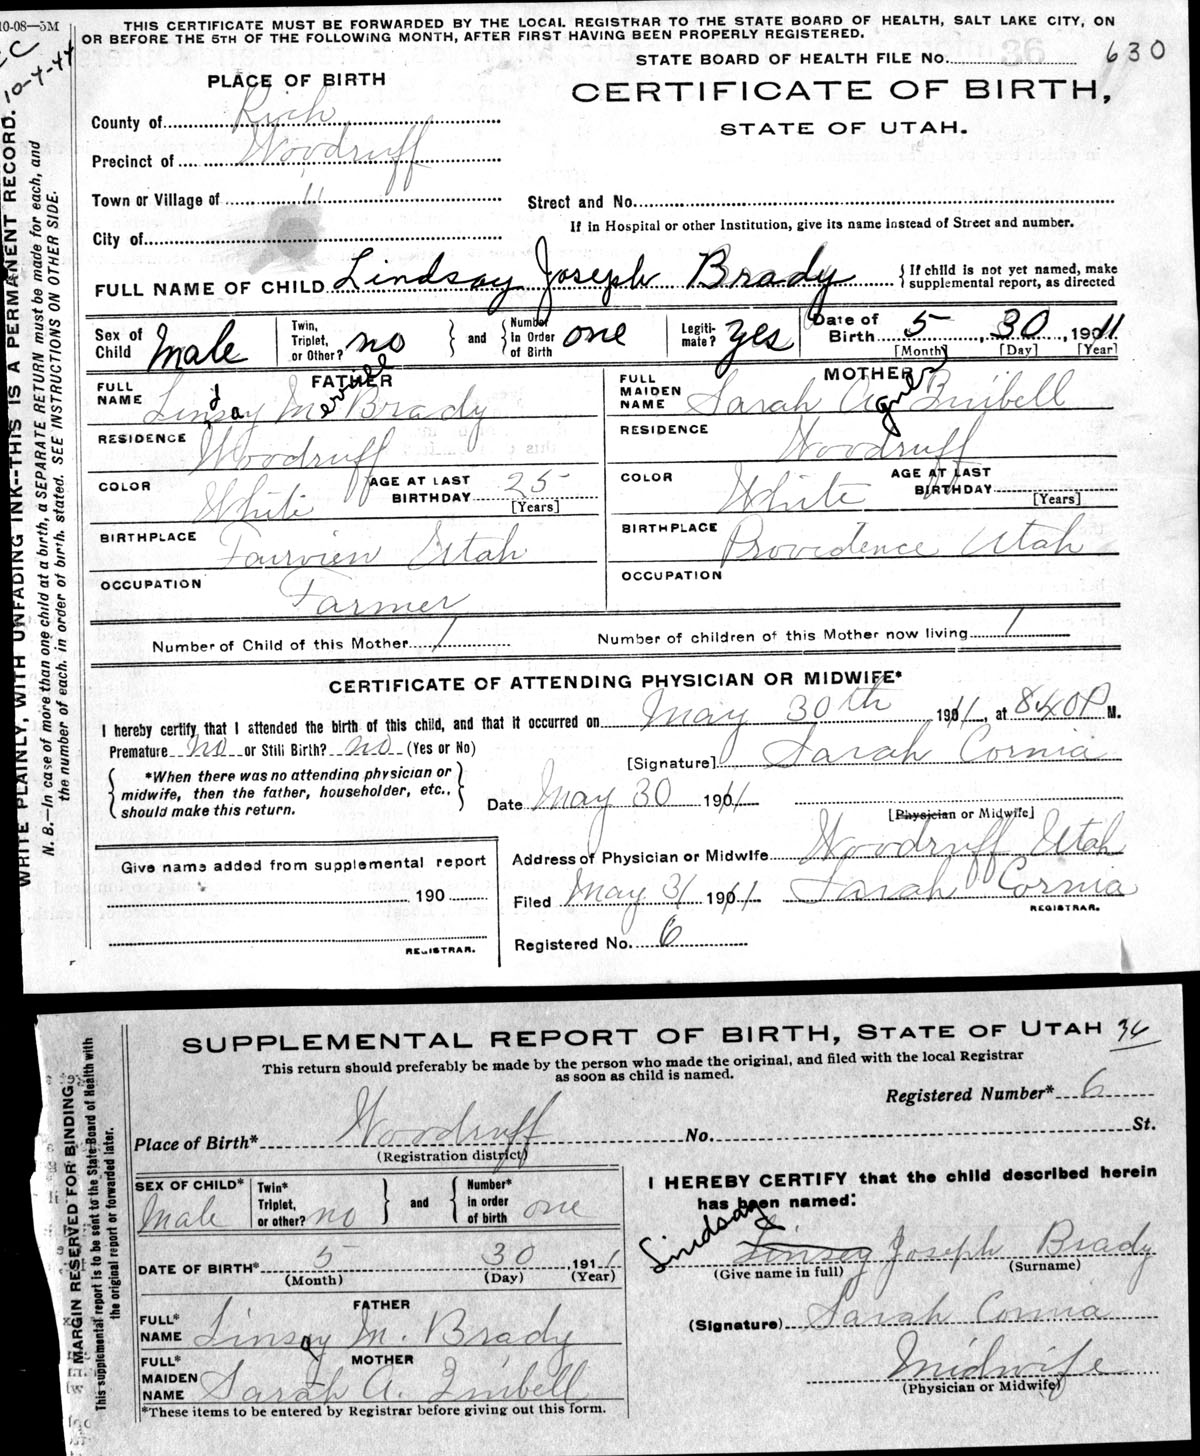 10-08—5M
10-4-44
THIS CERTIFICATE MUST BE FORWARDED BY THE LOCAL REGISTRAR TO THE STATE BOARD OF HEALTH, SALT LAKE CITY, ON
OR BEFORE THE 5TH OF THE FOLLOWING MONTH, AFTER FIRST HAVING BEEN PROPERLY REGISTERED.
STATE BOARD OF HEALTH FILE NO. 36 630
PLACE OF BIRTH
CERTIFICATE OF BIRTH,
STATE OF UTAH.
County of Rich
Precinct of Woodruff
Town or Village of "
Street and No.
City of
If in Hospital or other Institution, give its name instead of Street and number.
FULL NAME OF CHILD Lindsay Joseph Brady
If child is not yet named, make
supplemental report, as directed
Sex of Child Male
Twin, Triplet, or Other? no
and
Number in Order of Birth one
Legitimate? yes
Date of Birth 5 30 1911
[Month] [Day] [Year]
FATHER
FULL NAME Lindsay Mervill Brady
RESIDENCE Woodruff
COLOR White
AGE AT LAST BIRTHDAY 25
[Years]
BIRTHPLACE Fairview Utah
OCCUPATION Farmer
MOTHER
FULL MAIDEN NAME Sarah Agnes
RESIDENCE Woodruff
COLOR White
AGE AT LAST BIRTHDAY
[Years]
BIRTHPLACE Providence Utah
OCCUPATION
Number of Child of this Mother 1
Number of children of this Mother now living 1
CERTIFICATE OF ATTENDING PHYSICIAN OR MIDWIFE*
I hereby certify that I attended the birth of this child, and that it occurred on May 30th 1911, at 840 P M.
Premature no or Still Birth? no (Yes or No)
[Signature] Sarah Cornia
*When there was no attending physician or
midwife, then the father, householder, etc.,
should make this return.
Date May 30 1911
[Physician or Midwife]
Address of Physician or Midwife Woodruff Utah
Filed May 31 1911 Sarah Cornia
REGISTRAR.
Registered No. 6
Give name added from supplemental report
190
REGISTRAR.
WRITE PLAINLY, WITH UNFADING INK--THIS IS A PERMANENT RECORD.
N. B.—In case of more than one child at a birth, a SEPARATE RETURN must be made for each, and
the number of each, in order of birth, stated. SEE INSTRUCTIONS ON OTHER SIDE.
SUPPLEMENTAL REPORT OF BIRTH, STATE OF UTAH 36
This return should preferably be made by the person who made the original, and filed with the local Registrar
as soon as child is named.
Registered Number* 6
Place of Birth* Woodruff No. St.
(Registration district)
SEX OF CHILD* Male
Twin* Triplet, or other? no
and
Number* in order of birth one
DATE OF BIRTH* 5 30 1911
(Month) (Day) (Year)
FATHER
FULL* NAME Linsay M. Brady
MOTHER
FULL* MAIDEN NAME Sarah A.
*These items to be entered by Registrar before giving out this form.
I HEREBY CERTIFY that the child described herein
has been named:
Lindsay Linsey Joseph Brady
(Give name in full) (Surname)
(Signature) Sarah Cornia
Midwife
(Physician or Midwife)
MARGIN RESERVED FOR BINDING.
This supplemental report is to be sent to the State Board of Health with
the original report or forwarded later.